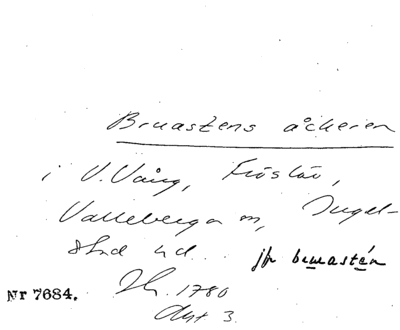 Bruastens åckeren
i V. Vång, Fröslöv,
Valleberga sn, Ingel-
stad hd. jfr bruastén
Nr 7684.
1780
Akt 3.